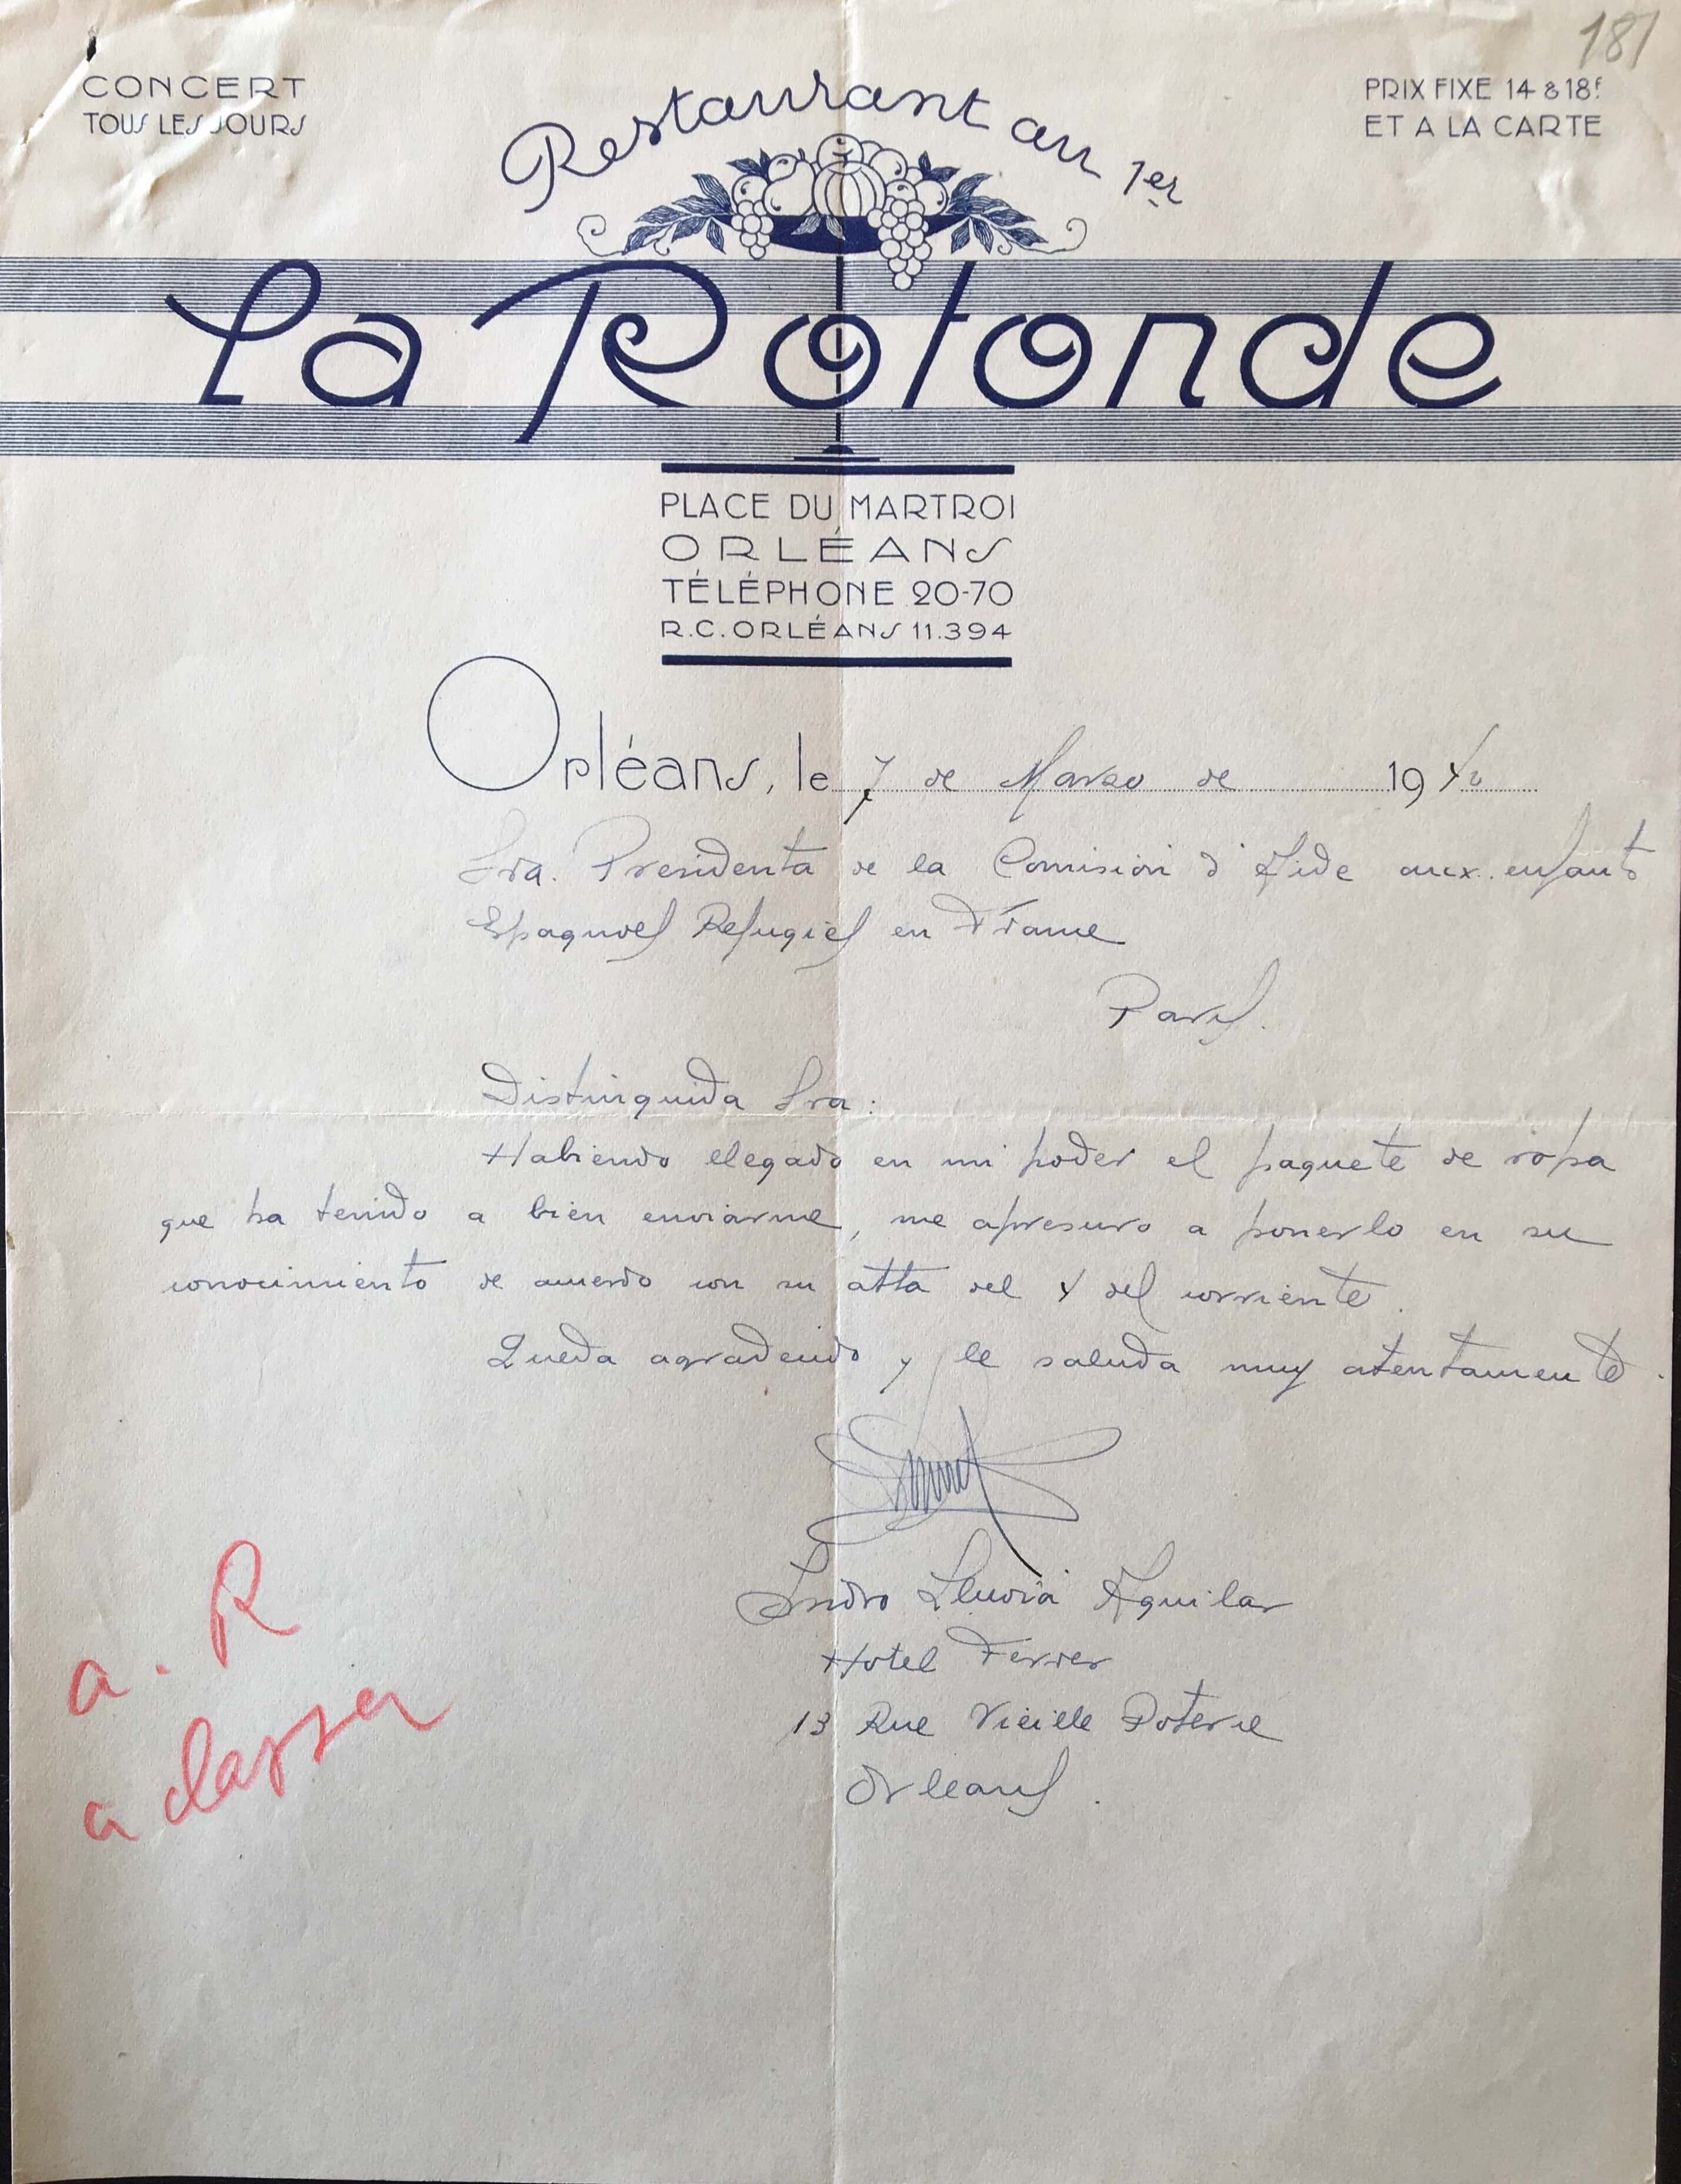 181
CONCERT
TOUS LES JOURS
PRIX FIXE 14 & 18f
ET A LA CARTE
Restaurant au 1er
La Rotonde
PLACE DU MARTROI
ORLÉANS
TÉLÉPHONE 20-70
R.C. ORLÉANS 11.394
Orléans, le 7 de Marzo de 1940
Sra. Presidenta de la Comision d'Aide aux enfants
Espagnoes Refugies en France
Paris.
Distinguida Sra:
Habiendo llegado en mi poder el paquete de ropa
que ha tenido a bien enviarme, me apresuro a ponerlo en su
conocimiento de acuerdo con su atta del 4 del corriente.
Queda agradecido y le saluda muy atentamente.
Isidro Lluviá Aguilar
Hotel Ferrer
13 Rue Vieille Poterie
Orleans.
a. R
a classer